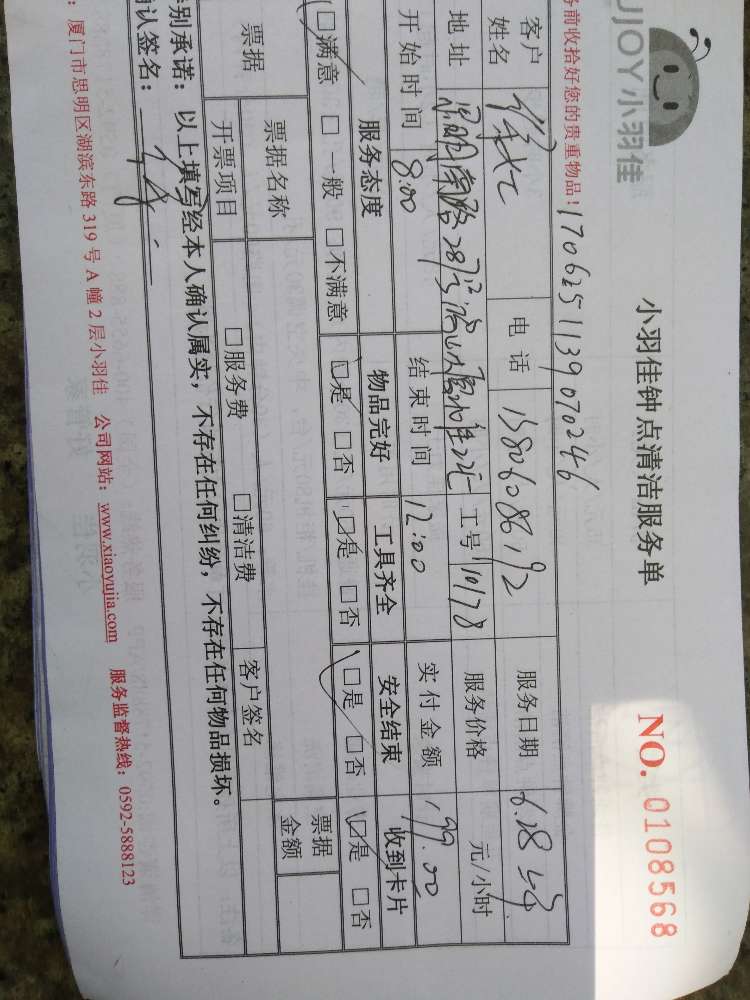 UJOY小羽佳
小羽佳钟点清洁服务单
NO. 0108568
务前收拾好您的贵重物品!
170625113907 0246
客户姓名 电话 服务日期 6.28
地址 287号 工号 10178 服务价格 元/小时
开始时间 8:00 结束时间 12:00 实付金额 199.00
服务态度 物品完好 工具齐全 安全结束 收到卡片
□满意 □一般 □不满意 □是 □否 □是 □否 □是 □否 □是 □否
票据 票据名称 客户签名 票据金额
开票项目 □服务费 □清洁费
别承诺:以上填写经本人确认属实,不存在任何纠纷,不存在任何物品损坏。
认签名:
:厦门市思明区湖滨东路 319 号 A 幢 2 层小羽佳 公司网站:www.xiaoyujia.com 服务监督热线:0592-5888123